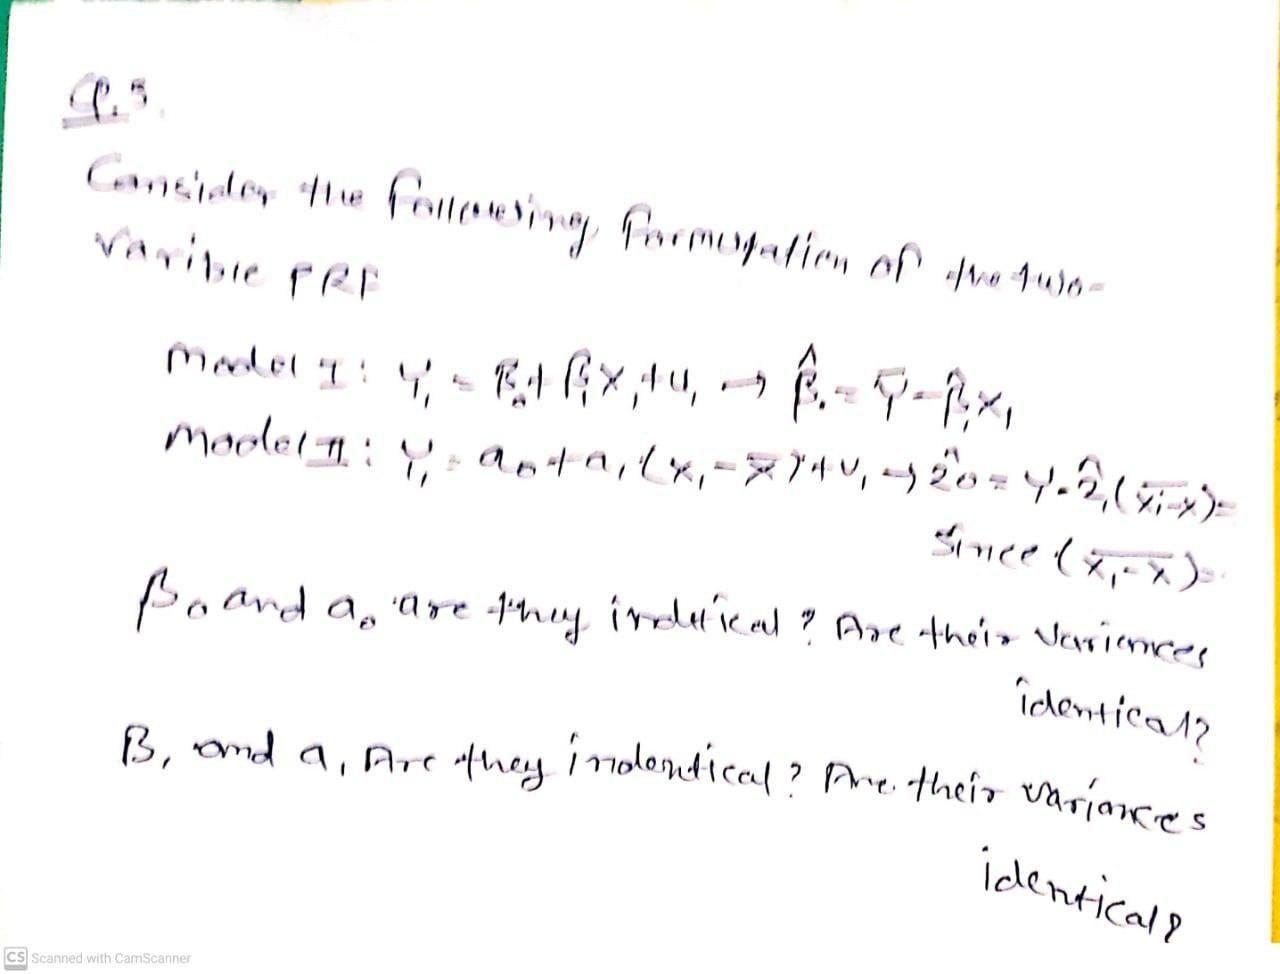 Q.5.
Consider the following formutation of the two-
varible PRF
Model I: Yᵢ = β₀ + β₁Xᵢ + uᵢ → β̂₀ = Ȳ - β̂₁X₁
Model II: Yᵢ = a₀ + a₁(xᵢ - x̄) + uᵢ → â₀ = Y - â₁(x̄ᵢ-x̄) =
Since (x̄ᵢ - x̄) =
β₀ and a₀ are they indetical? Are their variences
identical?
B₁ and a₁ Are they indentical? Are their variances
identical?
CS Scanned with CamScanner